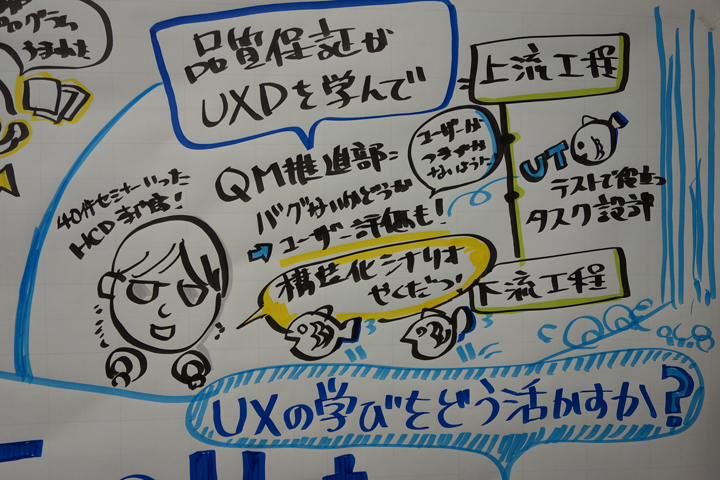 うまれた
品質保証が
UXDを学んで
上流工程
ユーザーが
つまずか
ないように
UT
テストで役立つ
タスク設計
QM推進部:
バグないかどうか
→ユーザー評価も!
構造化シナリオ
やくだつ!
下流工程
40件セミナーいった
HCD専門家!
UXの学びをどう活かすか?